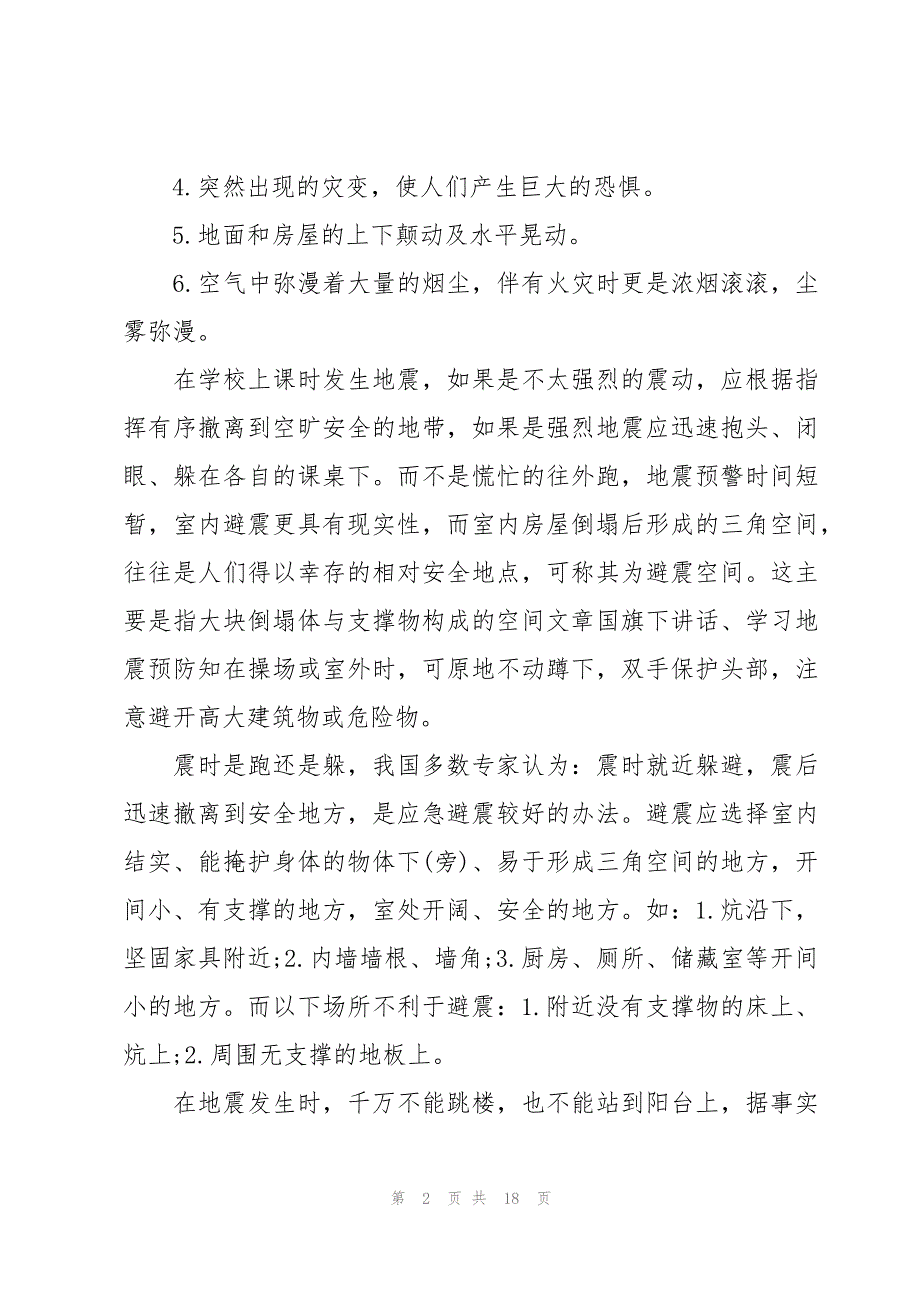 4.突然出现的灾变，使人们产生巨大的恐惧。
5.地面和房屋的上下颠动及水平晃动。
6.空气中弥漫着大量的烟尘，伴有火灾时更是浓烟滚滚，尘
雾弥漫。
在学校上课时发生地震，如果是不太强烈的震动，应根据指
挥有序撤离到空旷安全的地带，如果是强烈地震应迅速抱头、闭
眼、躲在各自的课桌下。而不是慌忙的往外跑，地震预警时间短
暂，室内避震更具有现实性，而室内房屋倒塌后形成的三角空间，
往往是人们得以幸存的相对安全地点，可称其为避震空间。这主
要是指大块倒塌体与支撑物构成的空间文章国旗下讲话、学习地
震预防知在操场或室外时，可原地不动蹲下，双手保护头部，注
意避开高大建筑物或危险物。
震时是跑还是躲，我国多数专家认为：震时就近躲避，震后
迅速撤离到安全地方，是应急避震较好的办法。避震应选择室内
结实、能掩护身体的物体下(旁)、易于形成三角空间的地方，开
间小、有支撑的地方，室处开阔、安全的地方。如：1.炕沿下，
坚固家具附近;2.内墙墙根、墙角;3.厨房、厕所、储藏室等开间
小的地方。而以下场所不利于避震：1.附近没有支撑物的床上、
炕上;2.周围无支撑的地板上。
在地震发生时，千万不能跳楼，也不能站到阳台上，据事实
第 2 页 共 18 页